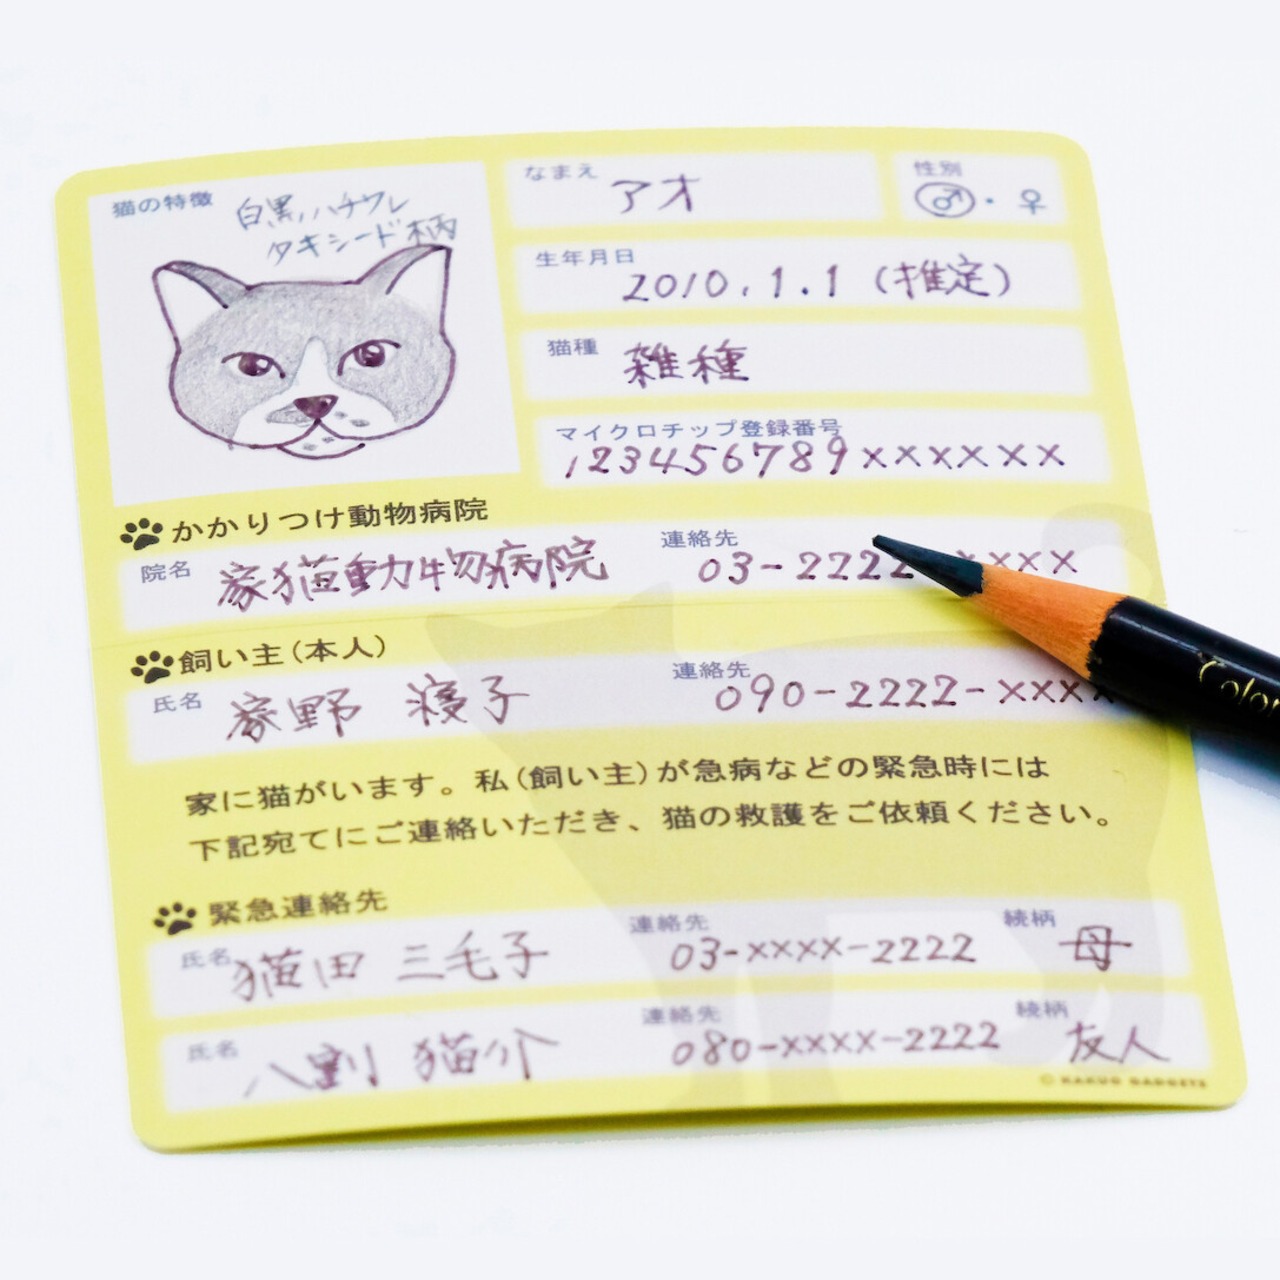 猫の特徴
白黒ハチワレ
タキシード柄
なまえ アオ
性別 ♂・♀
生年月日 2010.1.1 (推定)
猫種 雑種
マイクロチップ登録番号
123456789××××××
かかりつけ動物病院
院名 家猫動物病院 連絡先 03-2222 ×××
飼い主(本人)
氏名 家野 寝子 連絡先 090-2222-×××
家に猫がいます。私(飼い主)が急病などの緊急時には
下記宛てにご連絡いただき、猫の救護をご依頼ください。
緊急連絡先
氏名 猫田 三毛子 連絡先 03-××××-2222 続柄 母
氏名 八割 猫介 連絡先 080-××××-2222 続柄 友人
© KAKUO GADGETS
Color